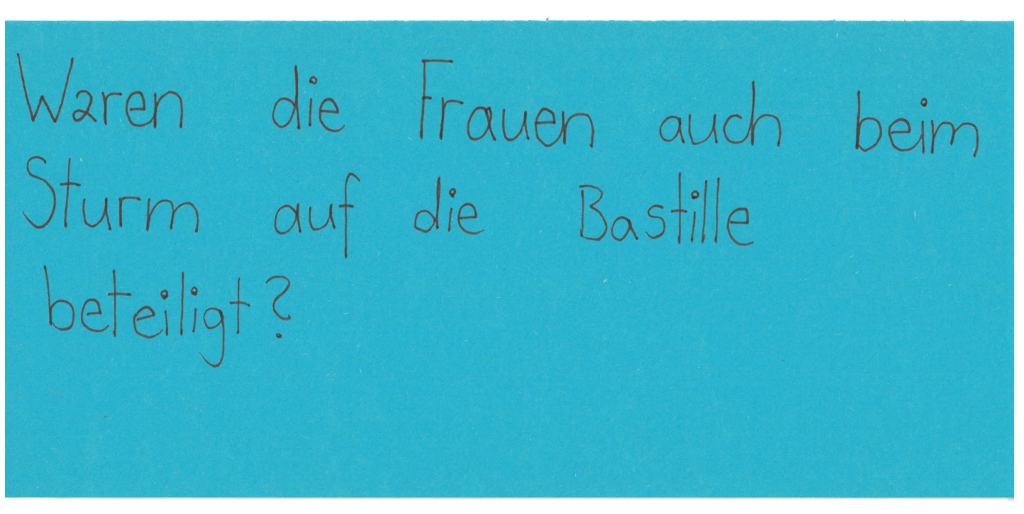 Waren die Frauen auch beim
Sturm auf die Bastille
beteiligt?